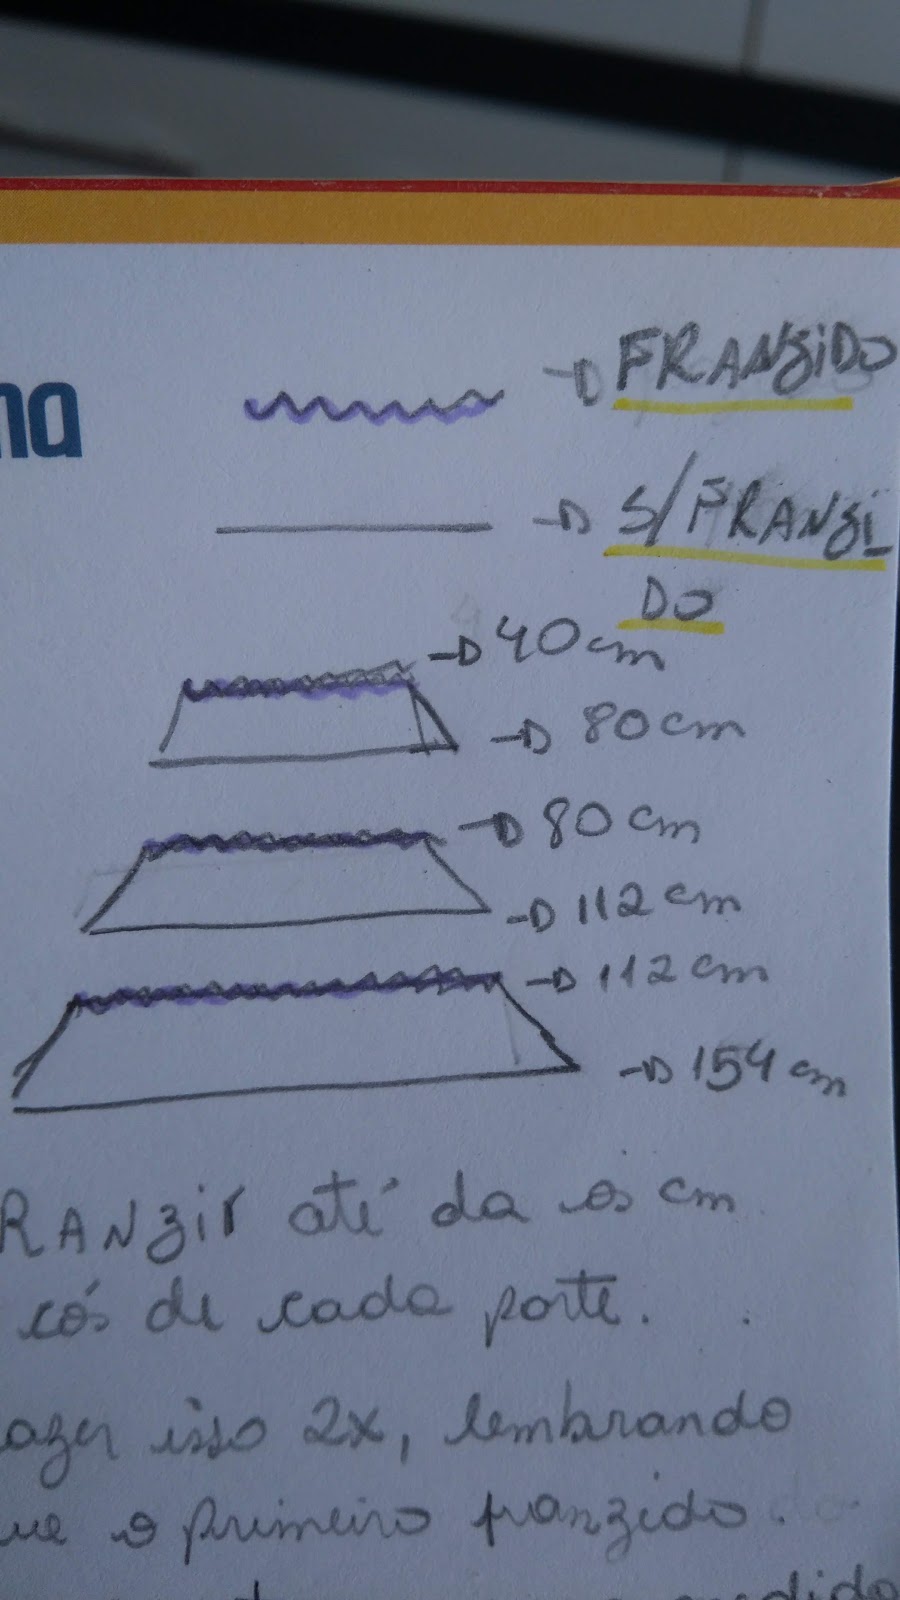 na
FRANZIDO
S/FRANZI
DO
40cm
80cm
80cm
112cm
112cm
154cm
RANZIR até da os cm
cós de cada parte.
azer isso 2x, lembrando
ue o primeiro franzido.
medido